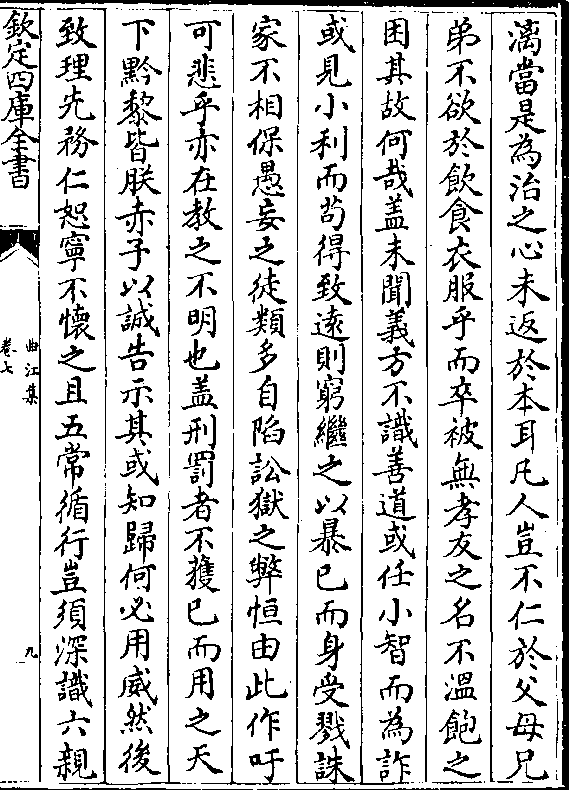 漓當是為治之心未返於本耳凡人豈不仁於父母兄
弟不欲於飲食衣服乎而卒被無孝友之名不溫飽之
困其故何哉盖未聞義方不識善道或任小智而為詐
或見小利而茍得致遠則窮繼之以暴已而身受戮誅
家不相保愚妄之徒類多自陷訟獄之弊恒由此作吁
可悲乎亦在教之不明也盖刑罰者不獲已而用之天
下黔黎皆朕赤子以誠告示其或知歸何必用威然後
致理先務仁恕寧不懷之且五常循行豈須深識六親
欽定四庫全書
曲江集
卷七
九